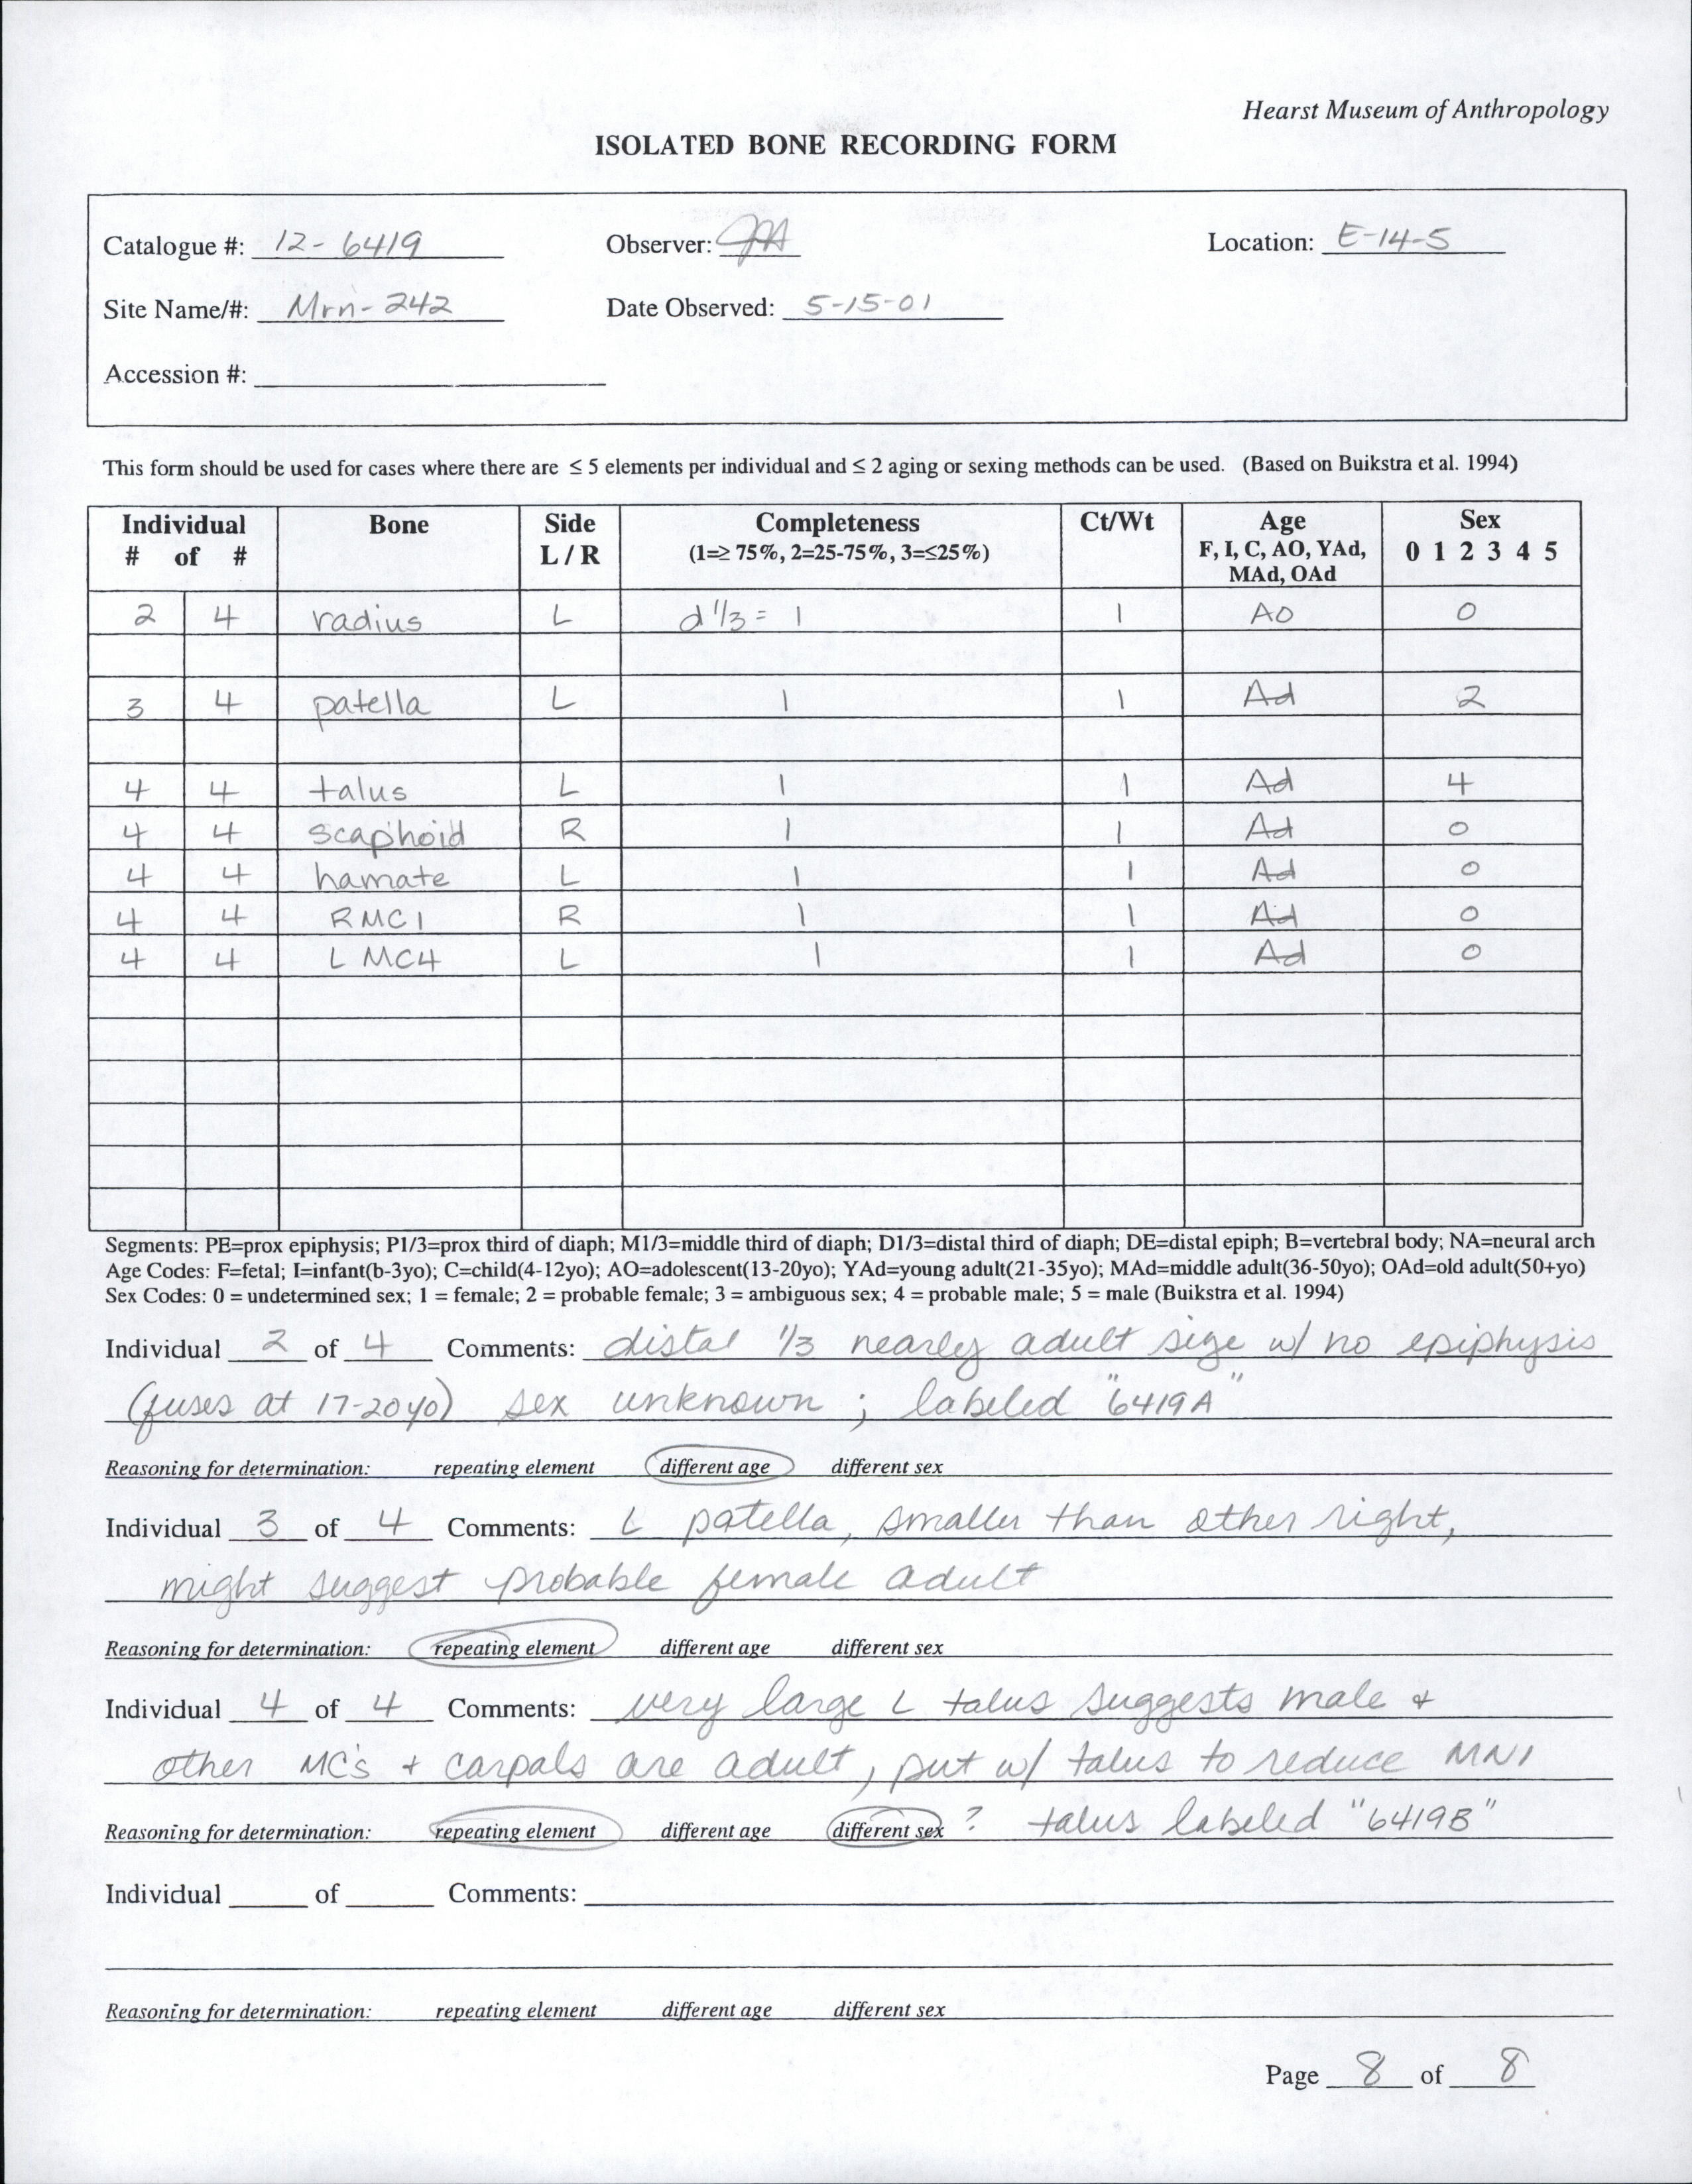 Hearst Museum of Anthropology
ISOLATED BONE RECORDING FORM
Catalogue #: 12-6419 Observer: Location: E-14-5
Site Name/#: Mrn-242 Date Observed: 5-15-01
Accession #:
This form should be used for cases where there are ≤ 5 elements per individual and ≤ 2 aging or sexing methods can be used. (Based on Buikstra et al. 1994)
Individual Bone Side Completeness Ct/Wt Age Sex
# of # L / R (1=≥ 75%, 2=25-75%, 3=≤25%) F, I, C, AO, YAd, 0 1 2 3 4 5
MAd, OAd
2 4 radius L d 1/3 = 1 1 AO 0
3 4 patella L 1 1 Ad 2
4 4 talus L 1 1 Ad 4
4 4 scaphoid R 1 1 Ad 0
4 4 hamate L 1 1 Ad 0
4 4 RMC1 R 1 1 Ad 0
4 4 L MC4 L 1 1 Ad 0
Segments: PE=prox epiphysis; P1/3=prox third of diaph; M1/3=middle third of diaph; D1/3=distal third of diaph; DE=distal epiph; B=vertebral body; NA=neural arch
Age Codes: F=fetal; I=infant(b-3yo); C=child(4-12yo); AO=adolescent(13-20yo); YAd=young adult(21-35yo); MAd=middle adult(36-50yo); OAd=old adult(50+yo)
Sex Codes: 0 = undetermined sex; 1 = female; 2 = probable female; 3 = ambiguous sex; 4 = probable male; 5 = male (Buikstra et al. 1994)
Individual 2 of 4 Comments: distal 1/3 nearly adult size w/ no epiphysis
(fuses at 17-20yo) sex unknown ; labeled "6419A"
Reasoning for determination: repeating element different age different sex
Individual 3 of 4 Comments: L patella, smaller than other right,
might suggest probable female adult
Reasoning for determination: repeating element different age different sex
Individual 4 of 4 Comments: very large L talus suggests male +
other MC's + carpals are adult, put w/ talus to reduce MNI
Reasoning for determination: repeating element different age different sex ? talus labeled "6419B"
Individual of Comments:
Reasoning for determination: repeating element different age different sex
Page 8 of 8